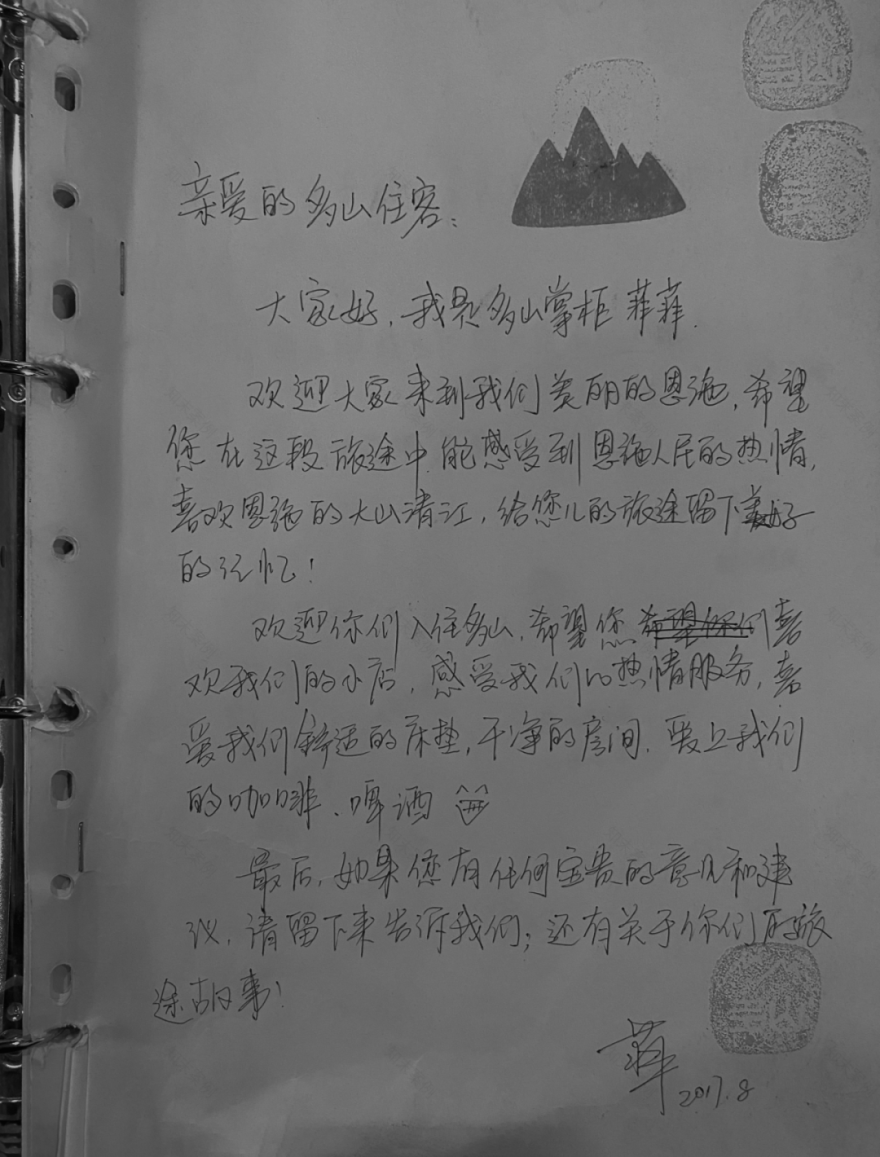 亲爱的多山住客：
大家好，我是多山掌柜菲菲.
欢迎大家来到我们美丽的恩施，希望
您在这段旅途中，能感受到恩施人民的热情，
喜欢恩施的大山清江，给您儿的旅途留下美好
的记忆！
欢迎你们入住多山，希望您喜
欢我们的小店，感受我们的热情服务，喜
爱我们舒适的床垫，干净的房间，爱上我们
的咖啡、啤酒
最后，如果您有任何宝贵的意见和建
议，请留下来告诉我们；还有关于你们的旅
途故事！
菲
2017.8